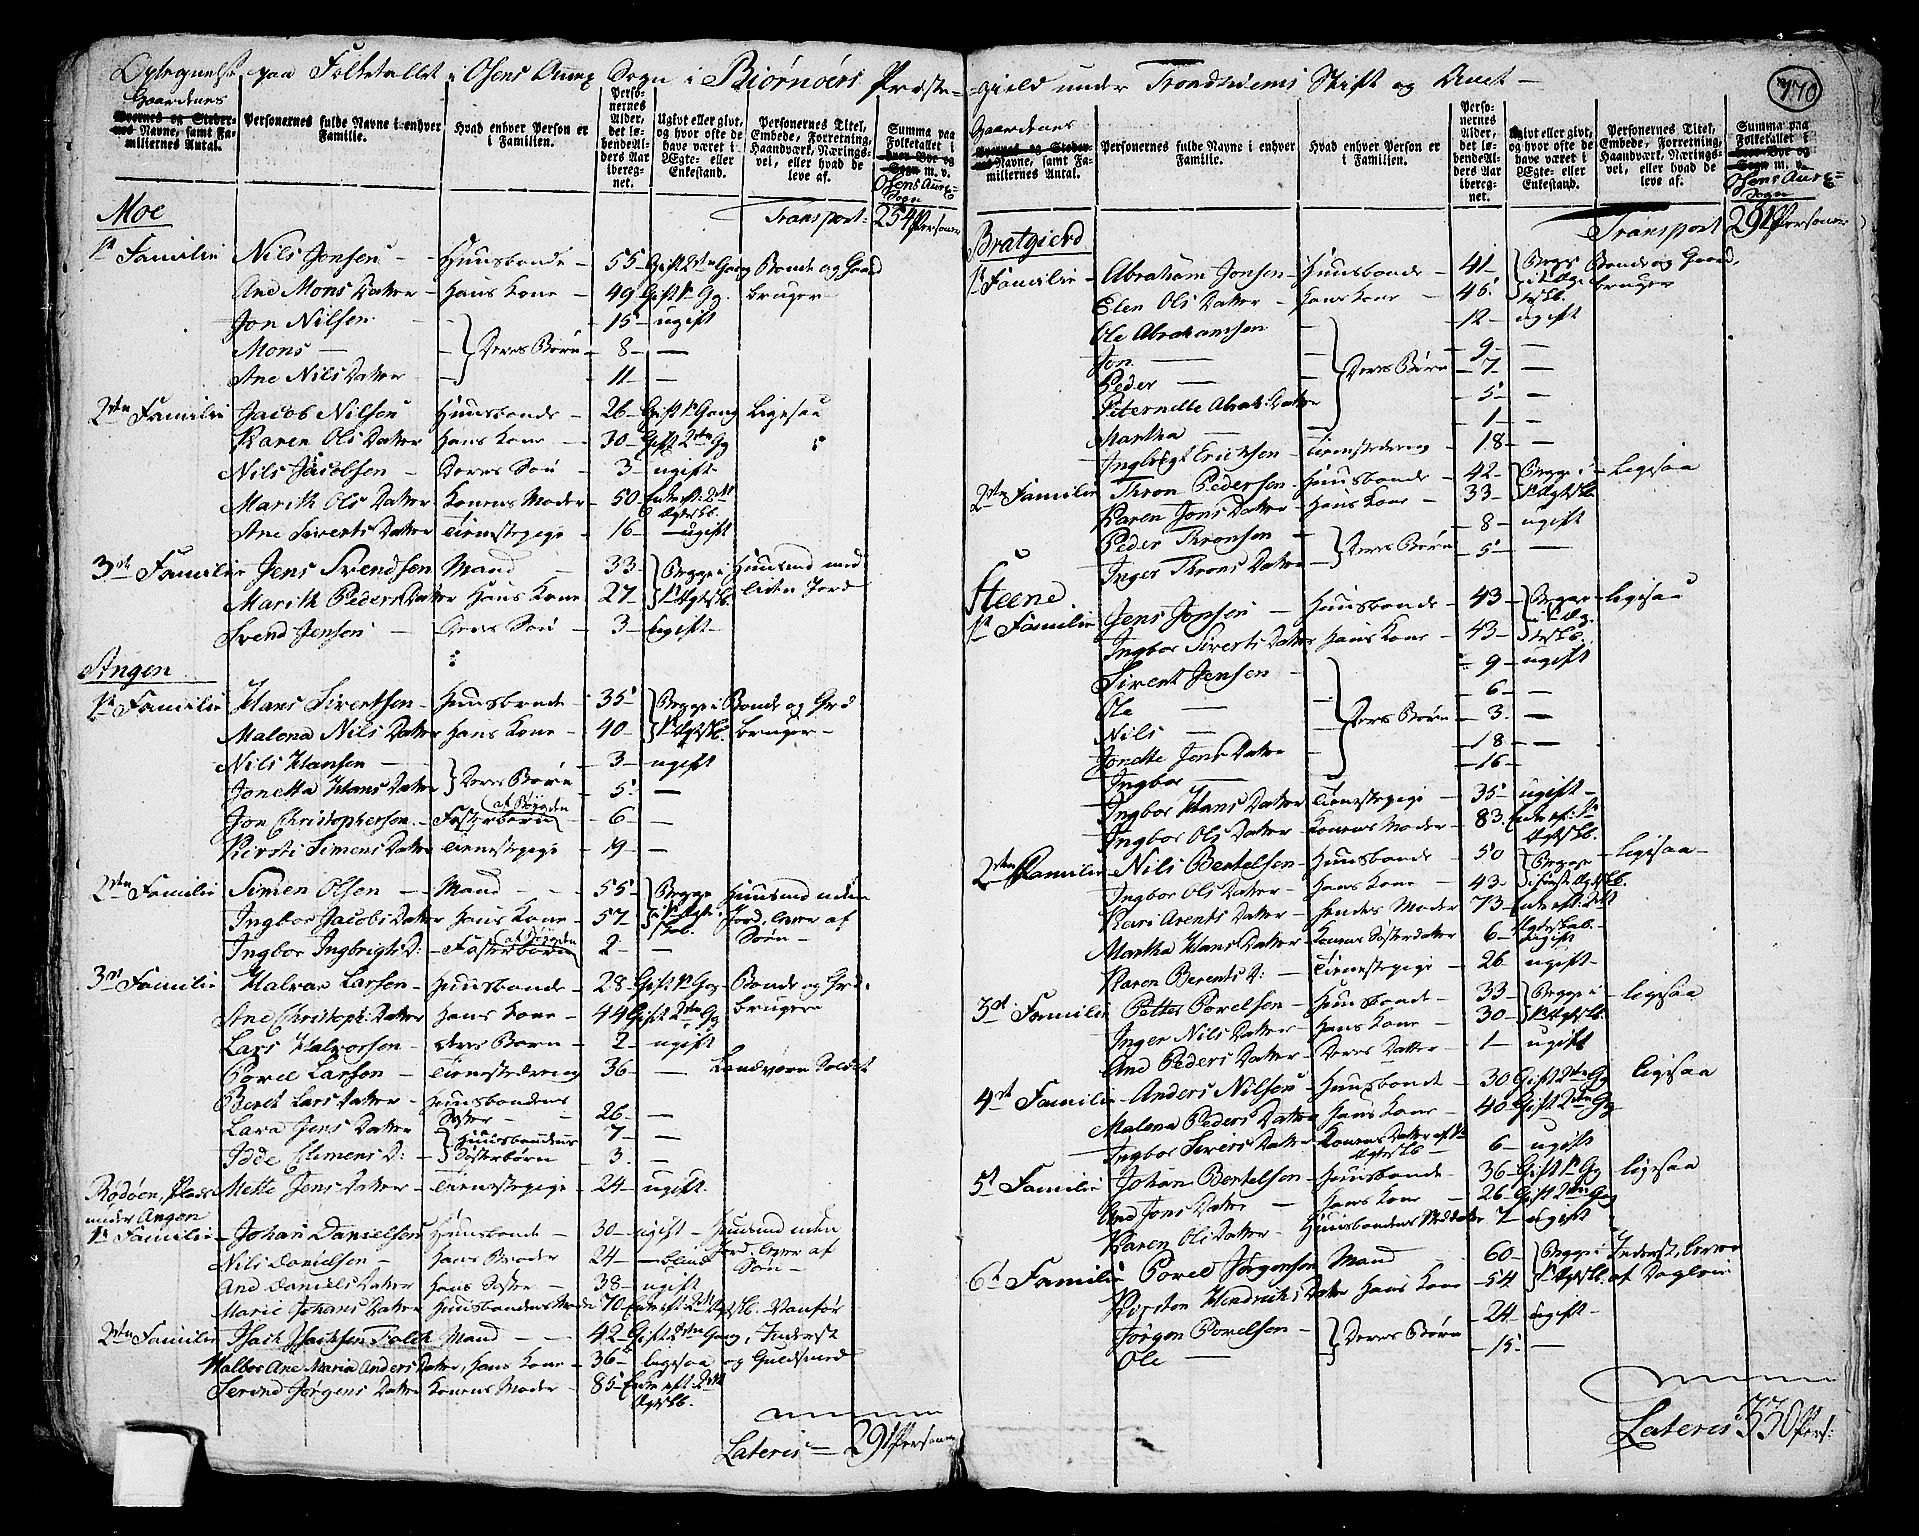 770
Optegnelse paa Folketallet i Osens Annex Sogn i Biørnøers Præste-
Gaardenes
Byernes og Stedernes Navne, samt Familiernes Antal. Personernes fulde Navne i enhver Familie. Hvad enhver Person er i Familien. Personernes Alder, det løbende Alders Aar iberegnet. Ugivt eller givt, og hvor ofte de have været i Ægte- eller Enkestand. Personernes Titel, Embede, Forretning, Haandværk, Næringsvei, eller hvad de leve af. Summa paa Folketallet i hver Bye og Sogn m. v.
Osens Anex Sogn
Moe Transport: 254 Personer
1te Familie Nils Jonsen - Huusbonde - 55 - Gift 2den Gang Bonde og Gaard
And Mons Datter - Hans Kone - 49 Gift 1te Gg. bruger
Jon Nilsen - 15 - ugift
Mons — Deres Børn - 8 - —
Ane Nils Datter - 11 - —
2den Familie Jacob Nilsen Huusbonde - 26 - Gift 1te Gang Ligesaa
Karen Ols Datter Hans Kone - 30 - Gift 2den Gg
Nils Jacobsen - Deres Søn - 3 - ugift
Marith Ols Datter Konens Moder - 50 Enke eft: 2det Ægtskb.
Ane Siverts Datter Tienestepige - 16 - ugift
3die Familie Jens Svendsen Mand - 33 - Begge i Huusmd med
Marith Peders Datter Hans Kone - 27 - 1te Ægtskb. liden Jord
Svend Jensen - Deres Søn - 3 - ugift
Angen
1te Familie Hans Sivertsen - Huusbonde - 35 Begge i Bonde og Grd
Malena Nils Datter Hans Kone - 40 - 1te Ægtskb. bruger -
Nils Hansen - 3 - ugift
Jonetta Hans Datter Deres Børn - 5 - —
Jon Christophersen - Fosterbørn af Bøygden - 6 - —
Kirsti Simens Datter Tienestepige - 19 - —
2den Familie Simen Olsen - Mand - 55 - Begge Huusmd uden
Ingbor Jacobs Datter Hans Kone - 57 - i 1te Ægteskab. Jord, lever af
Ingbor Ingbrigts D: - Fosterbørn af Bøygden 2 - — Søen -
3die Familie Halvor Larsen - Huusbonde - 28 - Gift 1te Gg - Bonde og Grd.
Ane Christoph: Datter Hans Kone - 44 Gift 2den Gg bruger
Lars Halvorsen - Deres Barn - 2 - ugift
Povel Larsen - Tienestedreng 36 - — Landværn Soldat
Beret Lars Datter - Huusbondens Søster - 26 - —
Lara Jens Datter Huusbondens 7 - —
Idde Clemens D: - Søsterbørn 3. —
Rødøen, Plads Mette Jens Datter - Tienestepige - 24 - ugift.
under Angen
1te Familie - Johan Danielsen Huusbonde - 30 - ugift - Huusmd uden
Nils Danielsen - Hans Broder - 24 - — blind Jord, lever af
And Daniels Datter Hans Søster - 38 - ugift Søen -
Marie Johans Datter Huusbondens Moder 70 Enke eft 2det Ægtskb. Vanfør
2den Familie Isach Isachsen Falch Mand - 42 - Gift 2den Gang, Inderst
Walbor Ane Maria Anders Datter, Hans Kone - 36 - ligesaa og Guldsmed
Serind Jørgens Datter Konens Moder - 85 - Enke eft 2det Ægtskb.
Lateris — 291 Personer
gield under Trondhiems Stift og Amt -
Gaardenes
Byernes og Stedernes Navne, samt Familiernes Antal. Personernes fulde Navne i enhver Familie. Hvad enhver Person er i Familien. Personernes Alder, det løbende Alders Aar iberegnet. Ugivt eller givt, og hvor ofte de have været i Ægte- eller Enkestand. Personernes Titel, Embede, Forretning, Haandværk, Næringsvei, eller hvad de leve af. Summa paa Folketallet i hver Bye og Sogn m. v.
Osens Anex Sogn
Transport 291 Personer
Bratgierd
1te Familie - Abraham Jonsen - Huusbonde - 41 - Begge Bonde og Gaard,
Elen Ols Datter - Hans Kone - 45 i 1te Ægteskb. bruger
Ole Abrahamsen - 12 - ugift
Jon — - 9 - —
Peder — Deres Børn - 7 - —
Peternelle Abrah: Datter - 5 - —
Martha — - 1 - —
Ingbrigt Erichsen - Tienestedreng - 18 - —
2den Familie Thron Pedersen - Huusbonde - 42 - Begge i - ligesaa
Karen Jons Datter - Hans Kone - 33 - 1te Ægtskb.
Peder Thronsen - 8 - ugift
Inger Throns Datter - Deres Børn - 5 - —
Steene
1te Familie Jens Jonsen - Huusbonde - 43 Begge - ligesaa
Ingbor Siverts Datter Hans Kone - 43 - i 1te Ægteskb.
Sivert Jensen - 9 - ugift
Ole — - 6 - —
Nils — Deres Børn - 3 - —
Jonette Jens Datter - 18 - —
Ingbor — - 16 -
Ingbor Hans Datter Tienestepige - 35 - ugift -
Ingbor Ols Datter - Konens Moder - 83. Enke ef: 1te Ægtskb.
2den Familie - Nils Bertelsen - Huusbonde - 50 Begge - ligesaa -
Ingbor Ols Datter - Hans Kone - 43 - i første Ægtskb.
Kari Arents Datter - Hendes Moder - 73 - Enke eft: 2det Ægteskab -
Martha Hans Datter - Konens Søsterdatter 6 - ugift
Karen Berents D: - Tienestepige - 26 ugift -
3die Familie Petter Povelsen - Huusbonde - 33 - Begge i - ligesaa
Inger Nils Datter - Hans Kone - 30 - 1te Ægtskb.
And Peders Datter - Deres Datter - 1 - ugift
4de Familie - Anders Nilsen - Huusbonde - 30 Gift 2den Gg ligesaa
Malena Peders Datter Hans Kone - 40 Gift 2den Gg
Ingbor Sivers Datter - Konens Datter af 1te Ægteskb - 6 - ugift
5te Familie - Johan Bertelsen - Huusbonde - 36 Gift 1te Gg ligesaa
And Jons Datter - Hans Kone - 26 - Gift 2den Gg
Karen Ols Datter - Huusbondens Steddatter 7 - ugift
6te Familie Povel Jørgensen Mand 60 - Begge i Inderst, lever
Kirsten Hendrichs Datter Hans Kone - 54 1te Ægtskb. af Dagleie
Jørgen Povelsen - 24 - ugift -
Ole — Deres Børn - 15 - —
Lateris 330 Pers: